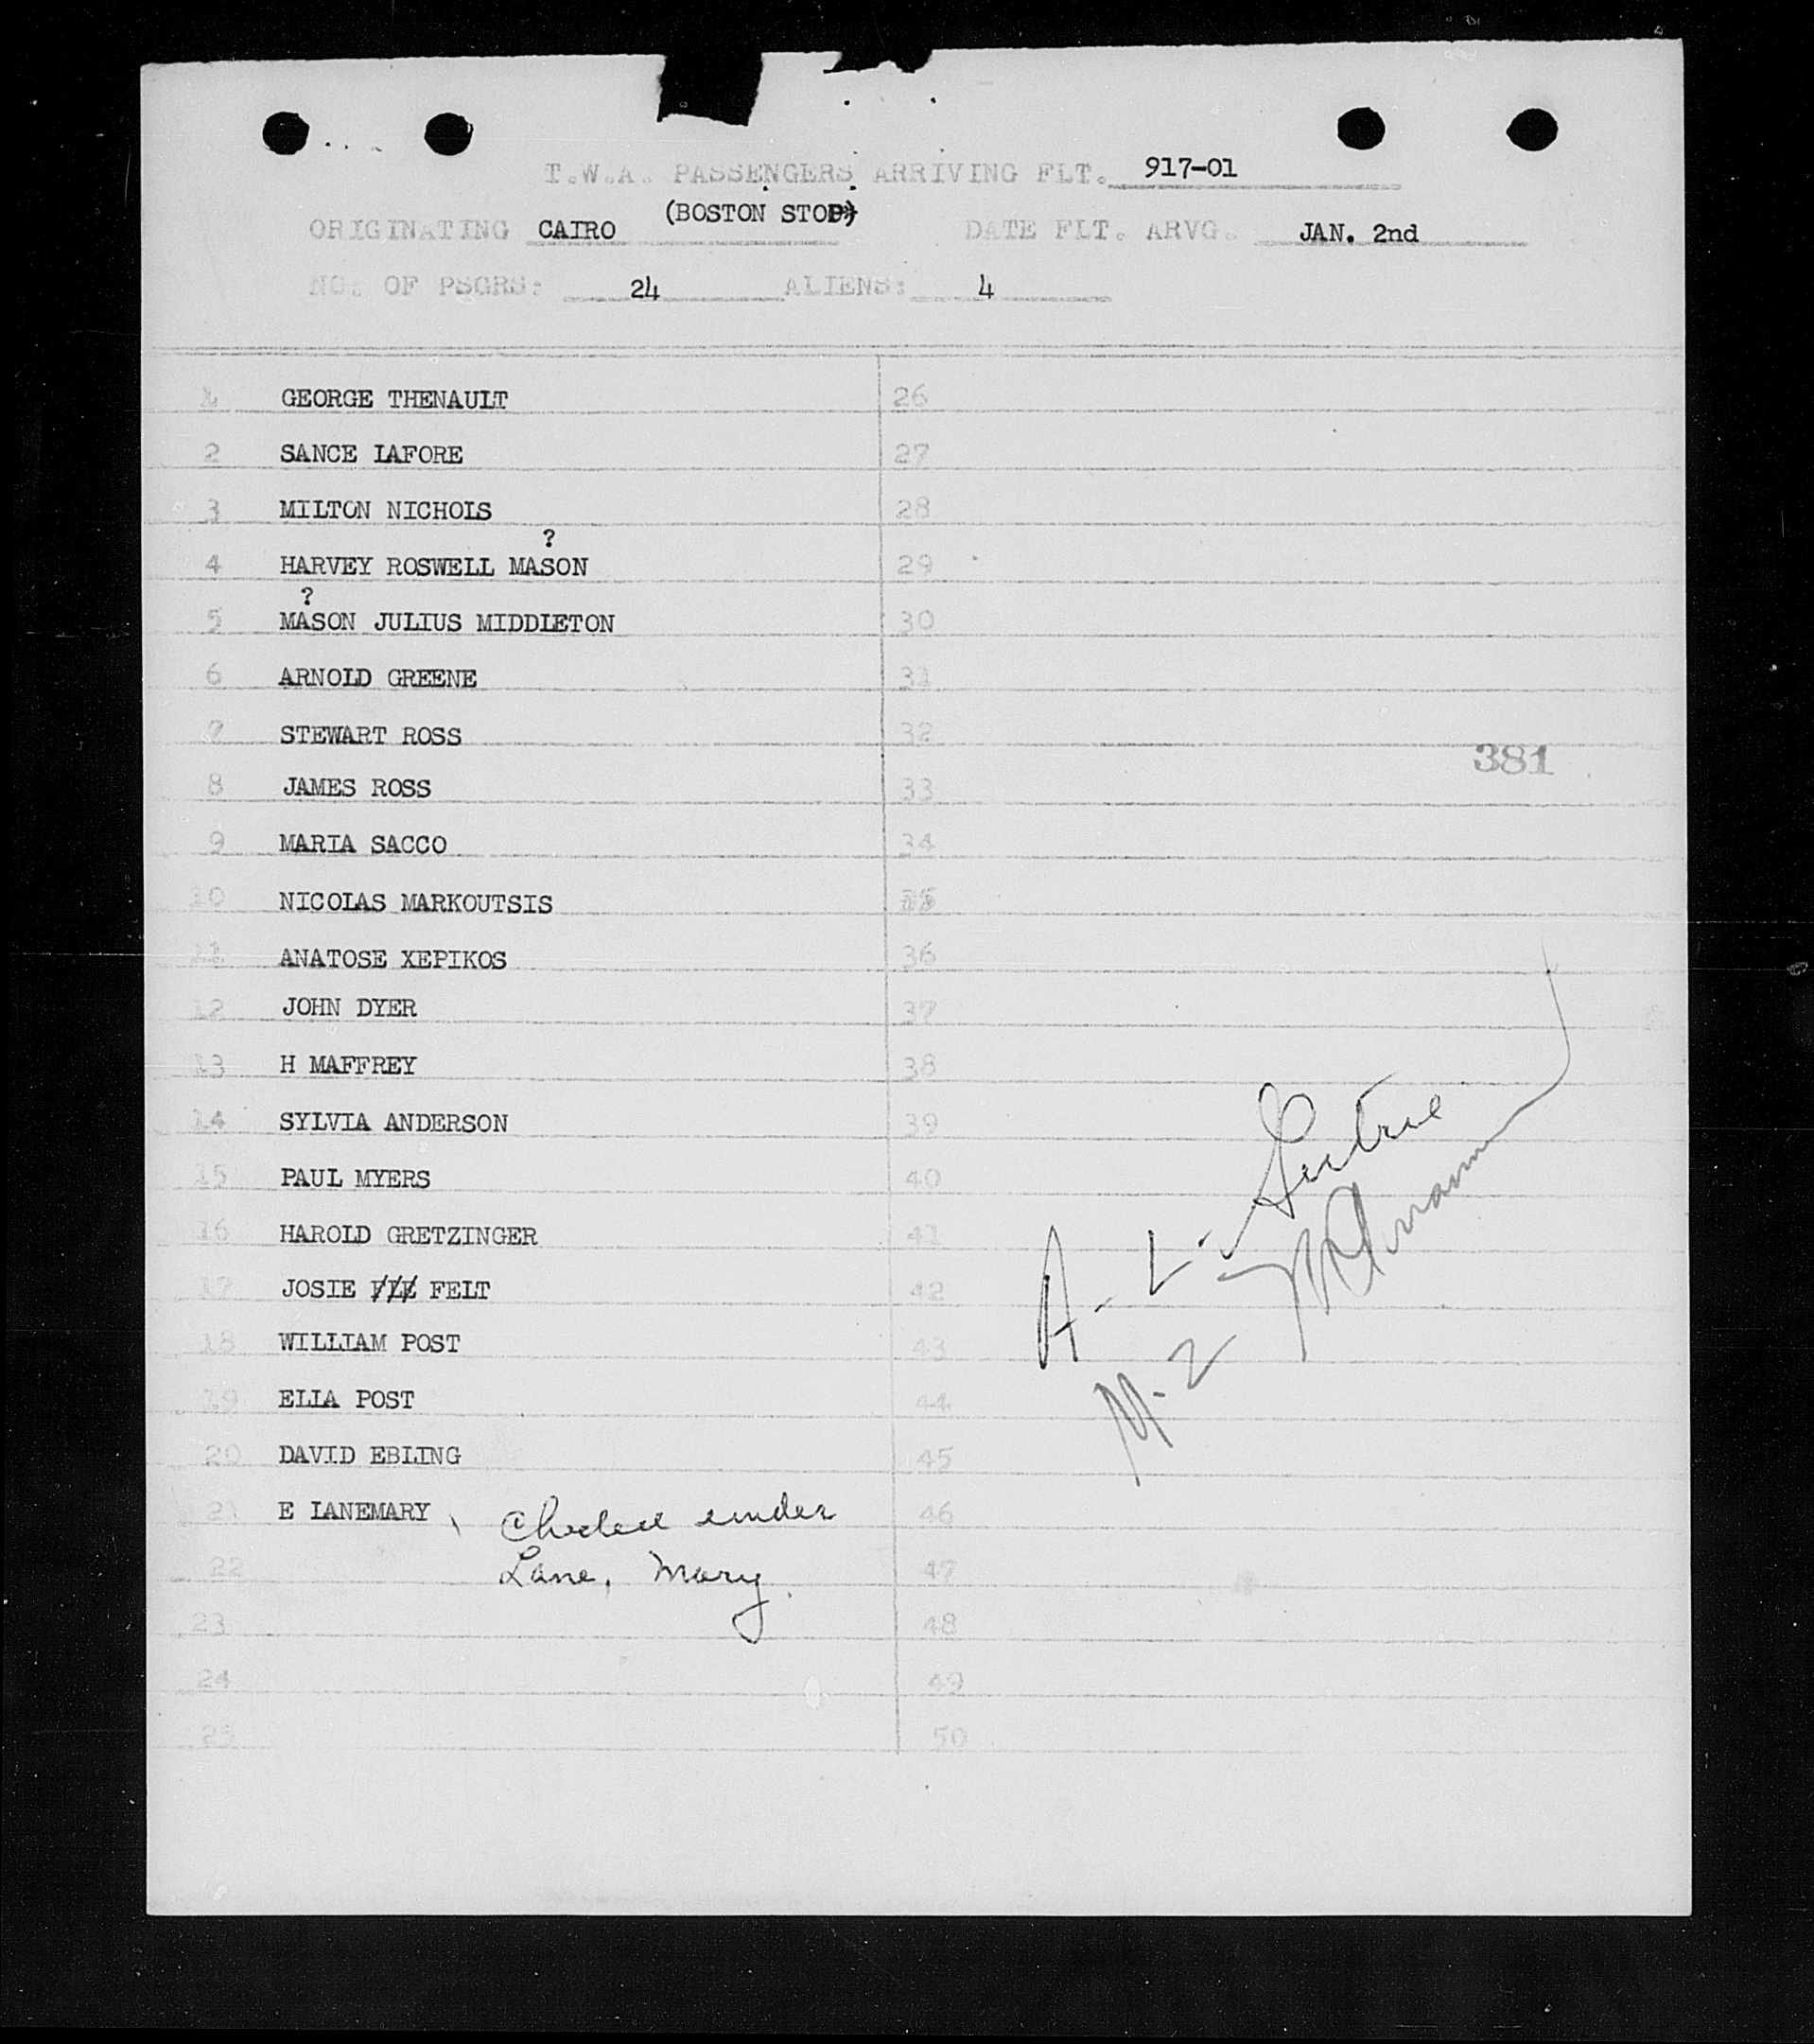 T.W.A. PASSENGERS ARRIVING FLT. 917-01
(BOSTON STOP)
ORIGINATING CAIRO DATE FLT. ARVG. JAN. 2nd
NO. OF PSGRS: 24 ALIENS: 4
1 GEORGE THENAULT 26
2 SANCE LAFORE 27
3 MILTON NICHOLS 28
?
4 HARVEY ROSWELL MASON 29
?
5 MASON JULIUS MIDDLETON 30
6 ARNOLD GREENE 31
7 STEWART ROSS 32
381
8 JAMES ROSS 33
9 MARIA SACCO 34
10 NICOLAS MARKOUTSIS 35
11 ANATOSE XEPIKOS 36
12 JOHN DYER 37
13 H MAFFREY 38
14 SYLVIA ANDERSON 39
15 PAUL MYERS 40
16 HAROLD GRETZINGER 41
17 JOSIE FELT 42
18 WILLIAM POST 43
19 ELLA POST 44
20 DAVID EBLING 45
21 E LANEMARY, Checked under 46
22 Lane, Mary. 47
23 48
24 49
25 50
A-L-
M-2